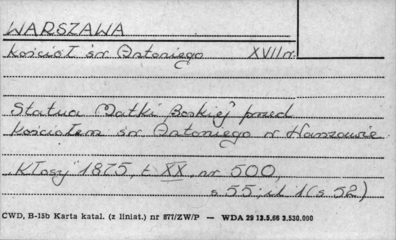 WARSZAWA
Kościół św. Antoniego XVII w.
Statua Matki Boskiej przed
kościołem św. Antoniego w Warszawie.
"Kłosy" 1875, t. XX, nr 500,
s 55; il. 1 (s 52)
CWD, B-15b Karta katal. (z liniat.) nr 877/ZW/P — WDA 29 13.5.66 2.530.000